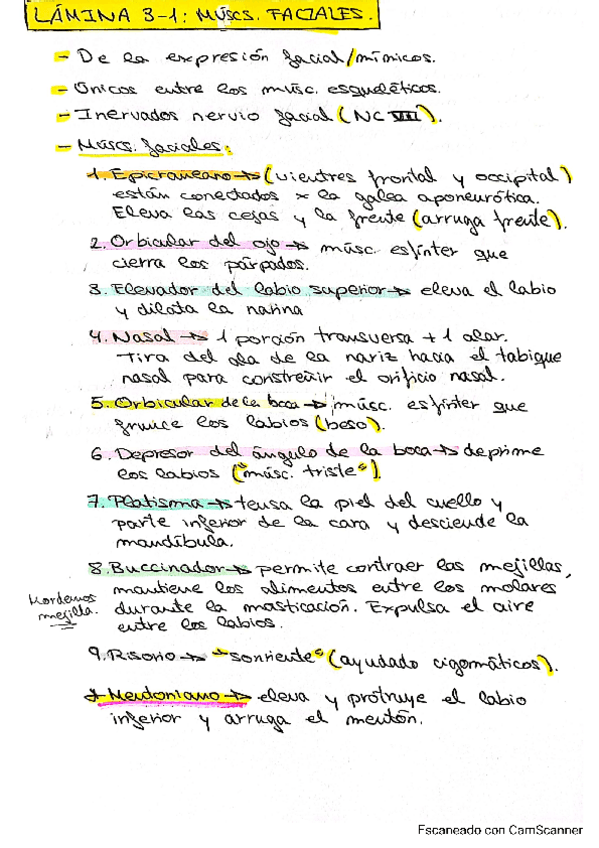 LÁMINA 3-1: MÚSCS. FACIALES.
- De la expresión facial/mímicos.
- Únicos entre los músc. esqueléticos.
- Inervados nervio facial (NC VII).
- Múscs. faciales:
1. Epicraneano → (vientres frontal y occipital)
están conectados x la galea aponeurótica.
Eleva las cejas y la frente (arruga frente).
2. Orbicular del ojo → músc. esfínter que
cierra los párpados.
3. Elevador del labio superior → eleva el labio
y dilata la narina
4. Nasal → 1 porción transversa + 1 alar.
Tira del ala de la nariz hacia el tabique
nasal para constreñir el orificio nasal.
5. Orbicular de la boca → músc. esfínter que
frunce los labios (beso).
6. Depresor del ángulo de la boca → deprime
los labios ("músc. triste").
7. Platisma → tensa la piel del cuello y
parte inferior de la cara y desciende la
mandíbula.
8. Buccinador → permite contraer las mejillas,
mantiene los alimentos entre los molares
durante la masticación. Expulsa el aire
entre los labios.
Mordemos
mejilla.
9. Risorio → "sonriente" (ayudado cigomáticos).
* Mentoniano → eleva y protruye el labio
inferior y arruga el mentón.
Escaneado con CamScanner